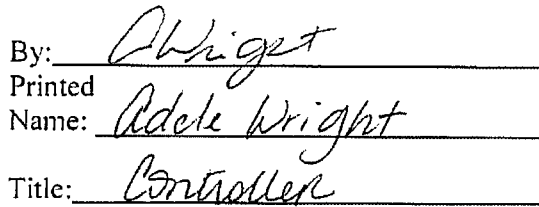 By: AWright
Printed
Name: Adele Wright
Title: Controller